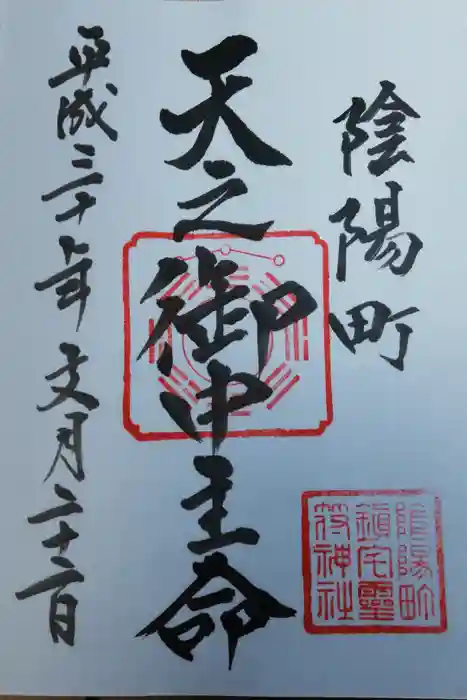 陰陽町
天之御中主命
平成三十年文月二十二日
陰陽町
鎮宅霊
符神社